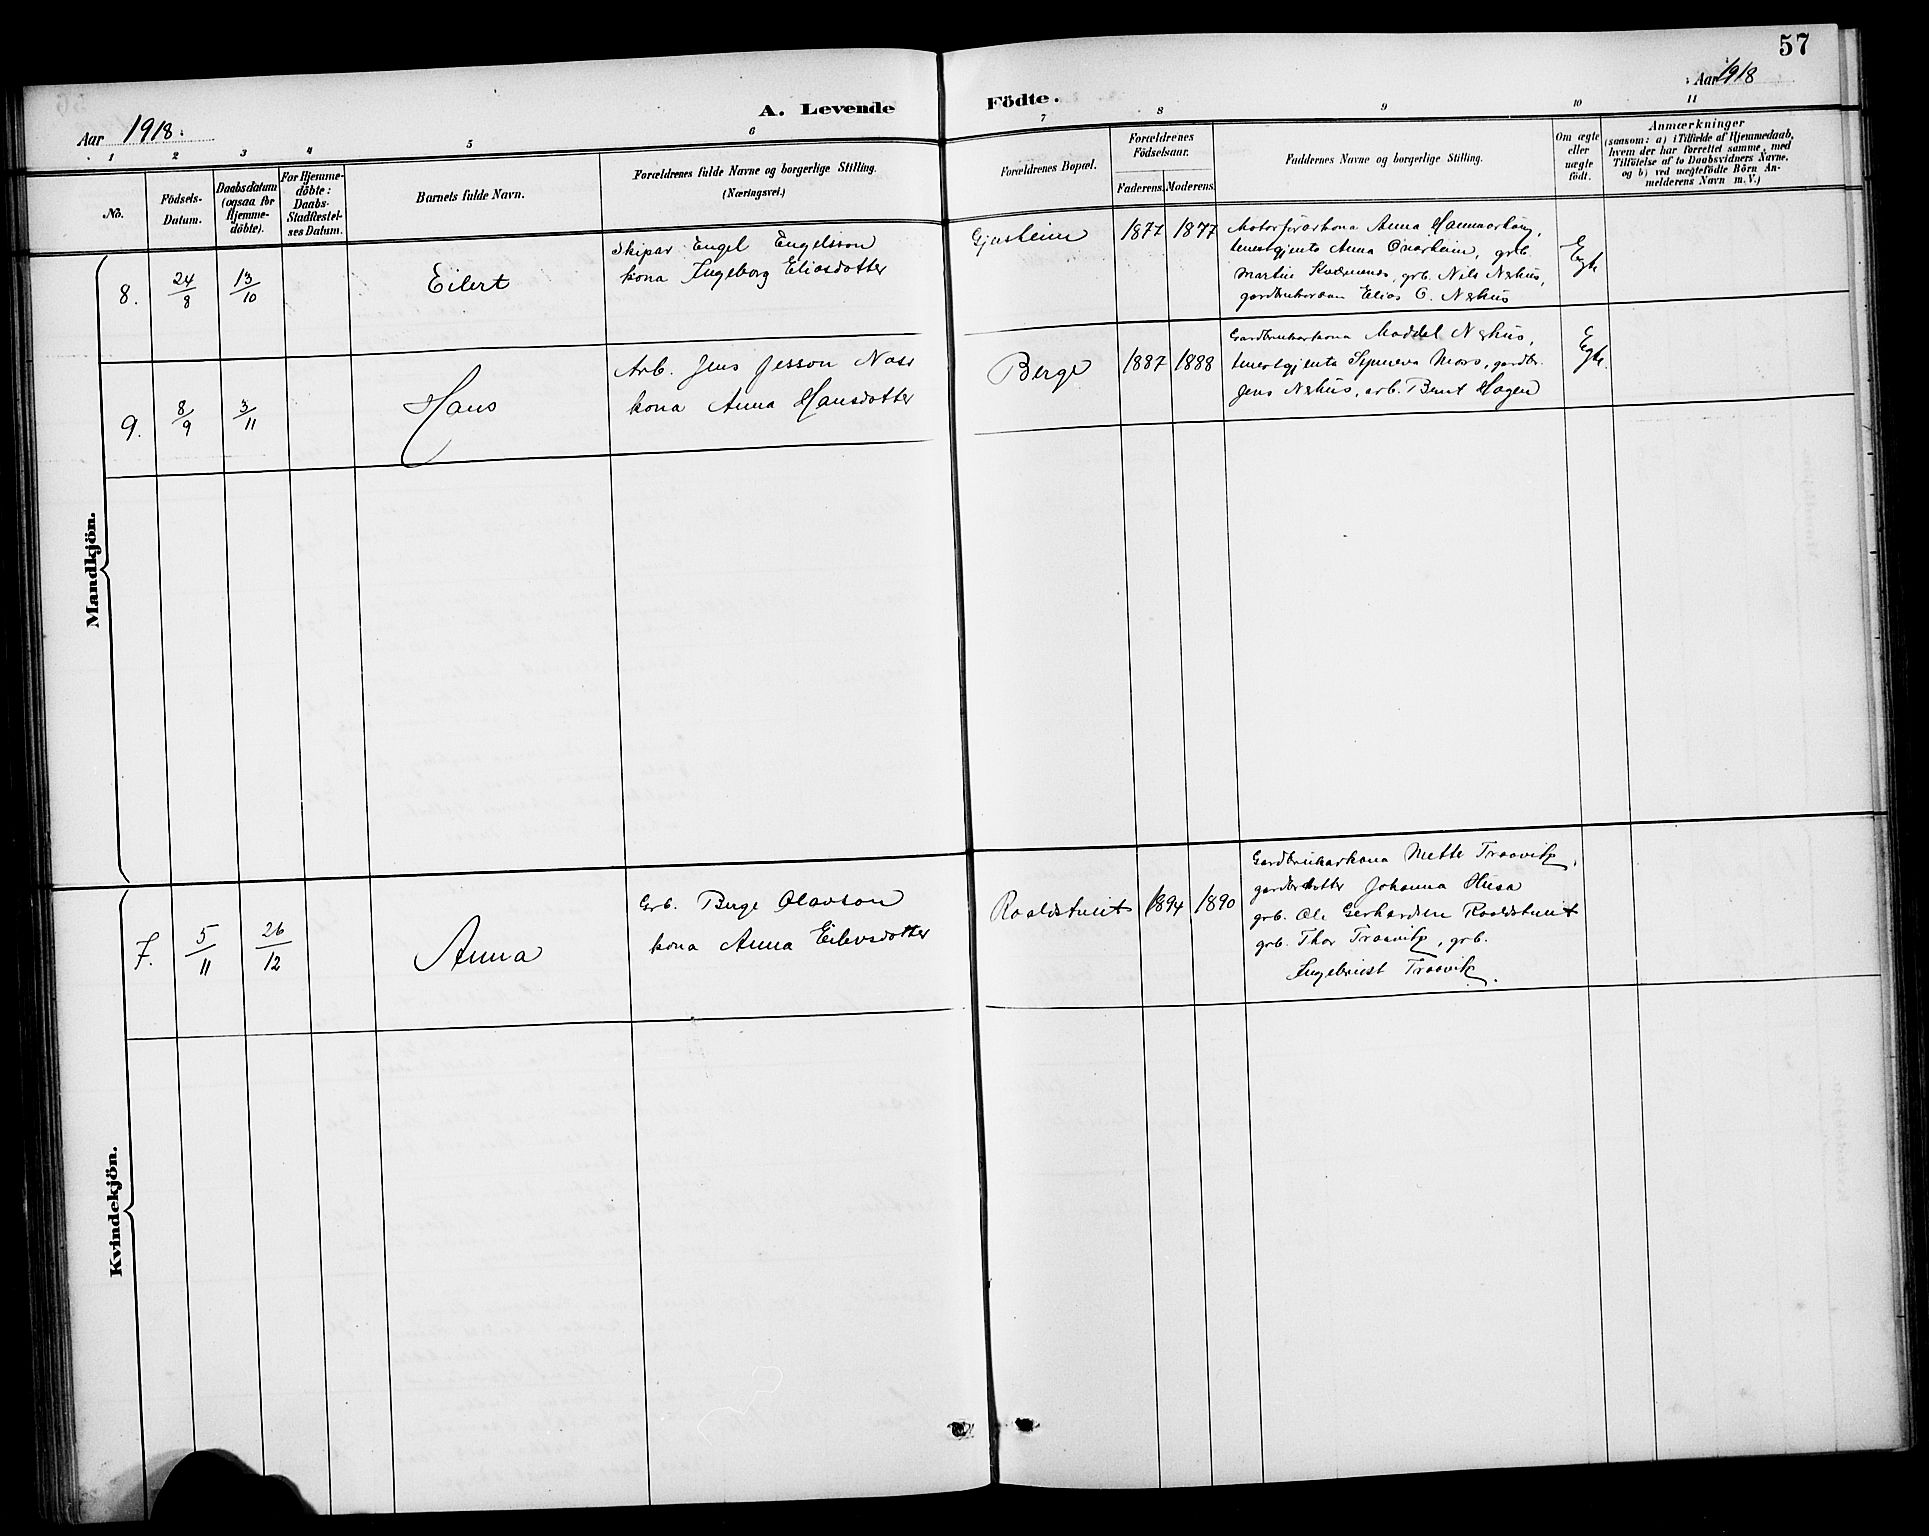 57
Aar 1918.
A. Levende Födte.
Aar 1918
1 2 3 4 5 6 7 8 9 10 11
No.
Födsels-
Datum.
Daabsdatum
(ogsaa for
Hjemme-
döbte).
For Hjemme-
döbte:
Daabs-
Stadfæstel-
ses Datum.
Barnets fulde Navn.
Forældrenes fulde Navne og borgerlige Stilling.
(Næringsvei.)
Forældrenes Bopæl.
Forældrenes
Födselsaar.
Faderens. Moderens.
Faddernes Navne og borgerlige Stilling.
Om ægte
eller
uægte
födt.
Anmærkninger
(saasom: a) i Tilfælde af Hjemmedaab,
hvem der har forrettet samme, med
Tilföielse af to Daabsvidners Navne,
og b) ved uægtefödte Börn An-
melderens Navn m. V.)
Mandkjön.
8. 24/8 13/10 Eilert
Skipar Engel Engelsson
kona Ingeborg Eliasdotter
1877 1877
Anna
Anna Onarheim, grb.
Martin Kvernenes, grb. Nils Nerhus,
gardbrukarson Elias O. Nerhus
Egte
9. 8/9 3/11 Hans
Arb. Jens Jesson Nass
kona Anna Hansdotter
Berge 1887 1888
Gardbrukarkona Maddel Nerhus,
tenestgjenta Synneva Mors, gardbr.
Jens Nerhus, arb. Bent Hagen
Egte.
Kvindekjön.
7. 5/11 26/12 Anna
Grb. Berge Olavson
kona Anna Eilevsdotter
Roaldstveit 1894 1890
Gardbrukarkona Mette Traavik,
gardbr dotter Johanna Husa
grb. Ole Gerhardsen Roaldstveit
grb. Thor Traavik, grb.
Ingebrigt Traavik.